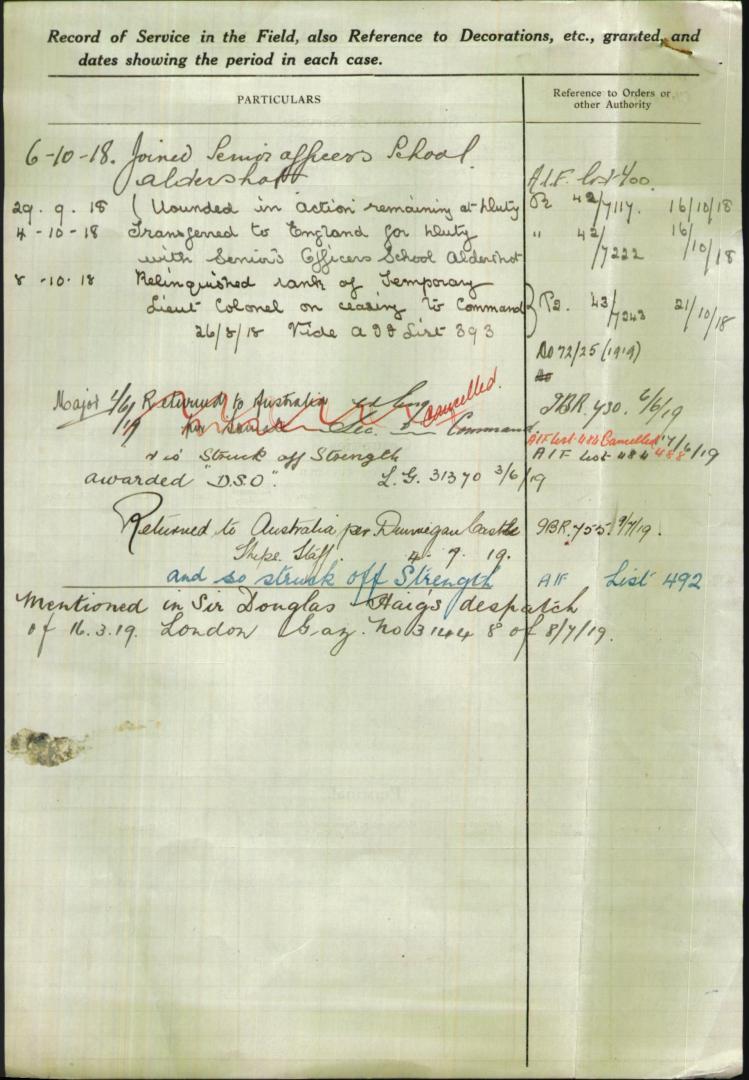 Record of Service in the Field, also Reference to Decorations, etc., granted, and
dates showing the period in each case.
PARTICULARS
Reference to Orders or
other Authority
6-10-18. Joined Senior officers School
Aldershott
A.I.F. list 400.
29. 9. 18 (Wounded in action remaining at duty
P2 42/7117. 16/10/18
4-10-18 Transferred to England for duty
with Senior's Officers School Aldershot
" 42/7222 16/10/18
8-10-18 Relinquished rank of Temporary
Lieut Colonel on ceasing to Command
26/8/18 Vide List 393
P2. 43/7243 21/10/18
Do 72/25 (1919)
Do
Major 4/6/19 Returned to Australia
Cancelled.
Command
730. 6/6/19
AIF List 484 Cancelled
is Struck off Strength
AIF List 484 488 /6/19
awarded "D.S.O". L.G. 31370 3/6/19
Returned to Australia per Dunvegan Castle
755. 9/7/19.
Ships Staff. 4. 7. 19.
and so struck off Strength
AIF List 492
Mentioned in Sir Douglas Haig's despatch
of 16.3.19. London Gaz. No 31448 of 8/7/19.